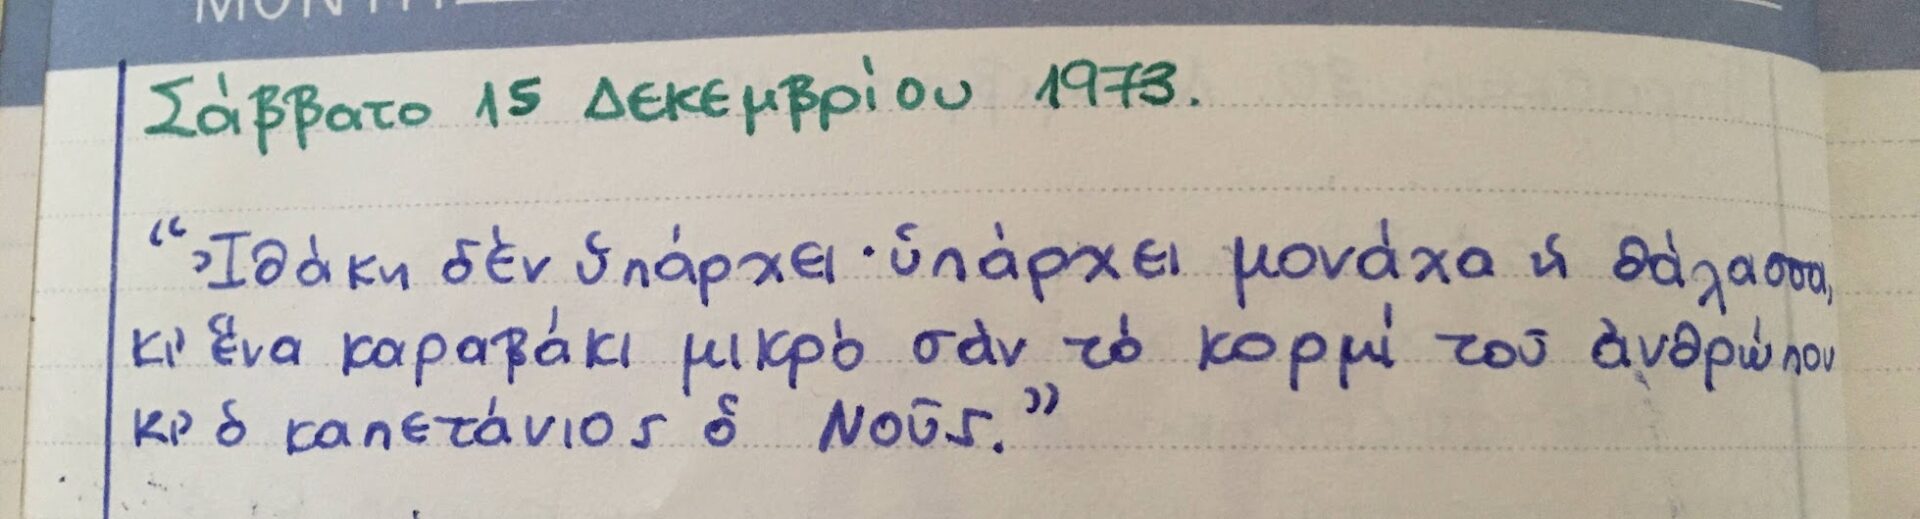 Σάββατο 15 Δεκεμβρίου 1973.
“Ἰθάκη δὲν ὑπάρχει· ὑπάρχει μονάχα ἡ θάλασσα,
κι’ ἕνα καραβάκι μικρὸ σὰν τὸ κορμί τοῦ ἀνθρώπου
κι’ ὁ καπετάνιος ὁ Νοῦς.”